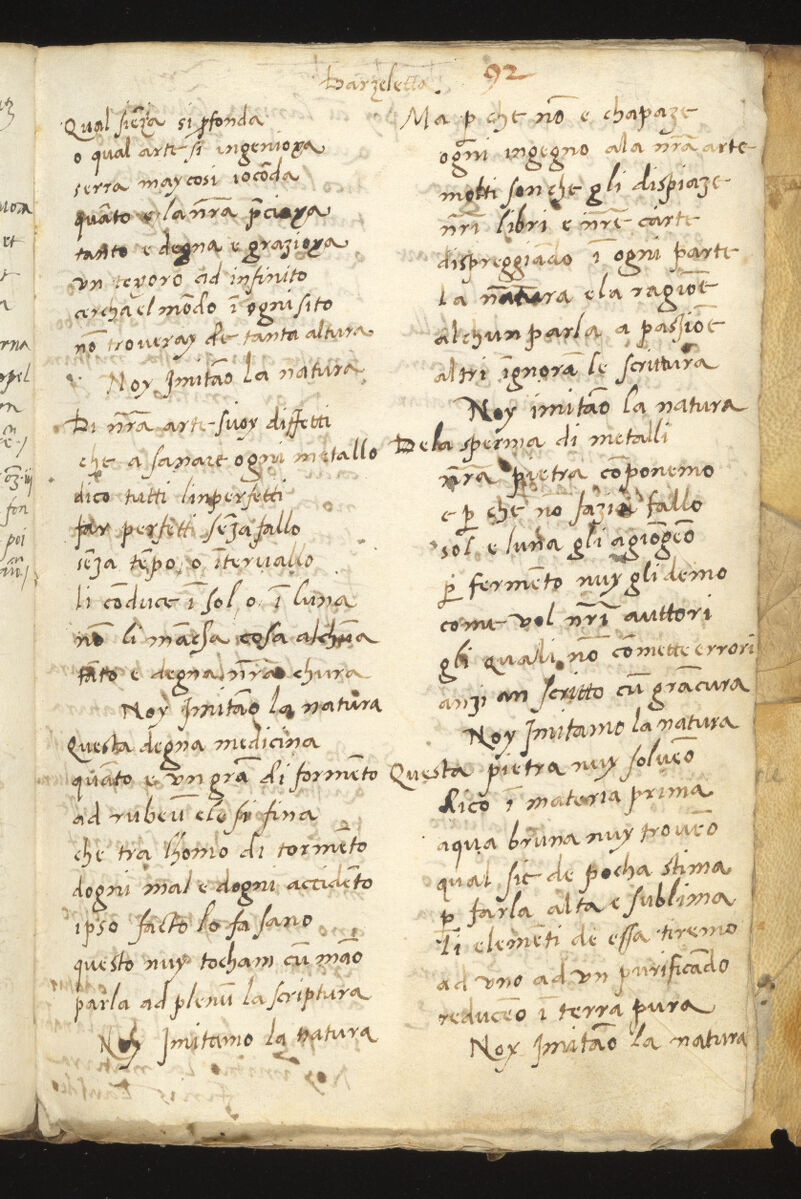 Barzeletta. 92
Qual sienza si pfonda
o qual arte si ingenioxa
serra may cosi iocōda
quāto e la nr̄a p̄cioxa
tanto e degna e grazioxa
vn texoro ad infinito
cercha el mōdo ī ogni sito
nō troveray de tanta altura
Noy Imitāo la natura
Di nr̄a arte suoy diffetti
che a sanare ogni metallo
dico tutti linperfetti
far perfetti senza fallo
senza tēpo o īteruallo
li cōduce ī sol o ī luna
nō li mācha cosa alchūa
tāto e degna nr̄a chura
Noy Imitāo la natura
Questa degna medicina
quāto e vn grā di formēto
ad rubeū elo si fina
che tra lhomo di tormēto
dogni mal e dogni accidēto
ipso facto lo fa sano
questo nuy tocham cū māo
parla ad plenū la scriptura
Noy Imitamo la natura
Ma p che nō e chapaze
ogni ingegno ala nr̄a arte
molti son che gli dispiaze
nr̄i libri e nr̄e carte
dispreggiādo ī ogni parte
la natura e la ragiōe
alchun parla a passiōe
altri īgnorā le scrittura
Noy imitāo la natura
Dela sperma di metalli
nr̄a pietra cōponemo
e p che no fazia fallo
sol e luna gli agiōgēo
p fermēto nuy gli demo
come vol nr̄i auttori
gli quali nō cōmette errori
anzi an scritto cū grā cura
Noy Imitamo la natura
Questa pietra nuy soluēo
dico ī materia prima
aqua bruna nuy trouēo
qual sie de pocha stima
p farla alta e sublima
li elemēti de essa tiremo
ad vno ad vn purificādo
reducēo ī terra pura
Noy Imitāo la natura